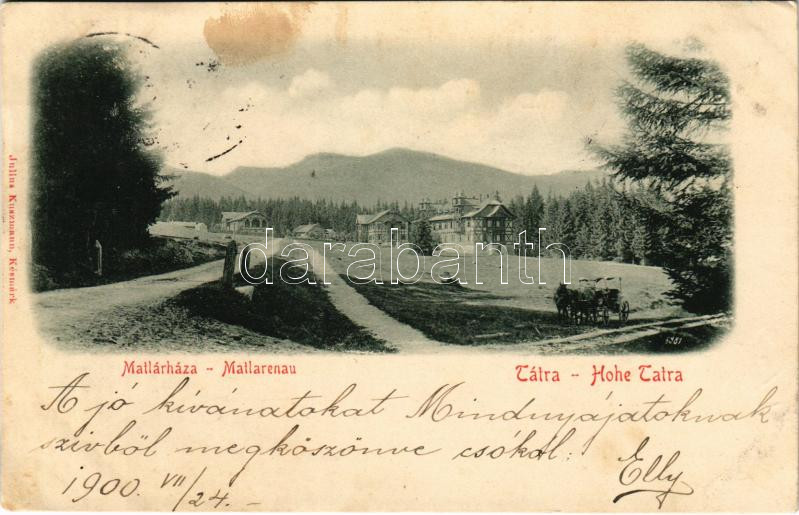 Julius Kuszmann, Késmárk
darabanth
5251
Matlárháza - Matlarenau
Tátra - Hohe Tatra
A jó kívánatokat Mindnyájatoknak
szivból megköszönve csókol:
Elly
1900. VII/24.-